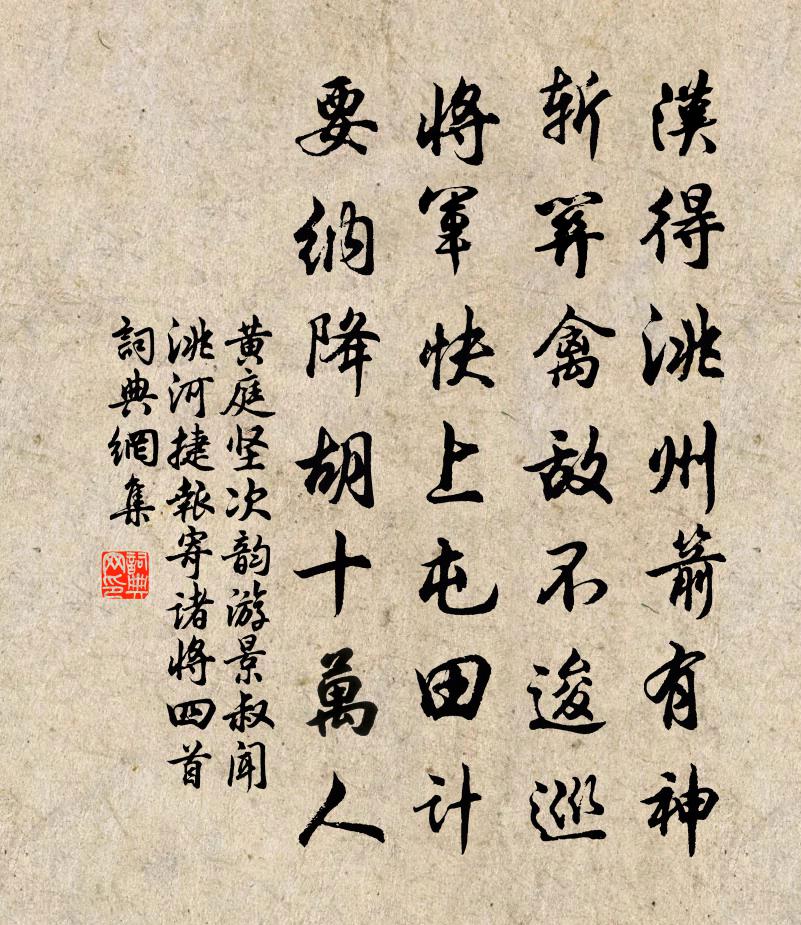 漢得洮州箭有神
斬關禽敵不逡巡
將軍快上屯田計
要納降胡十萬人
黄庭坚次韵游景叔闻
洮河捷報寄诸將四首
詞典網集
詞典网印